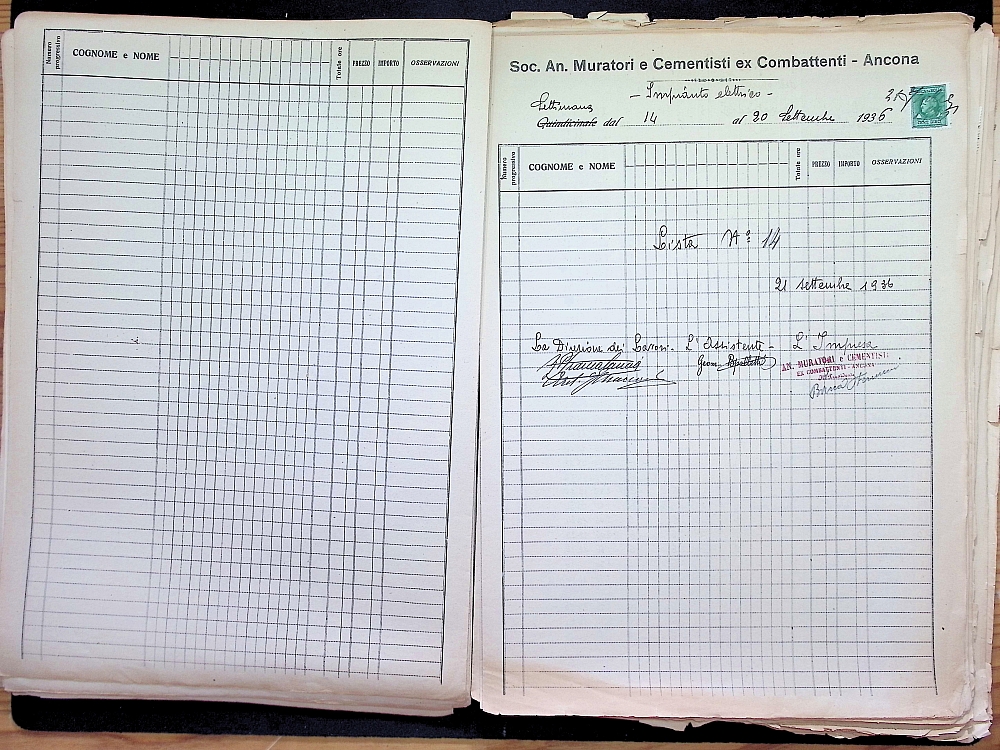 Numero progressivo COGNOME e NOME Totale ore PREZZO IMPORTO OSSERVAZIONI
Soc. An. Muratori e Cementisti ex Combattenti - Ancona
- Impianto elettrico -
Settimana
Quindicinale dal 14 al 20 Settembre 1936
Numero progressivo COGNOME e NOME Totale ore PREZZO IMPORTO OSSERVAZIONI
Lista N° 14
21 settembre 1936
La Direzione dei Lavori - L'Assistente - L'Impresa
Geom.
AN. MURATORI e CEMENTISTI
EX COMBATTENTI - ANCONA